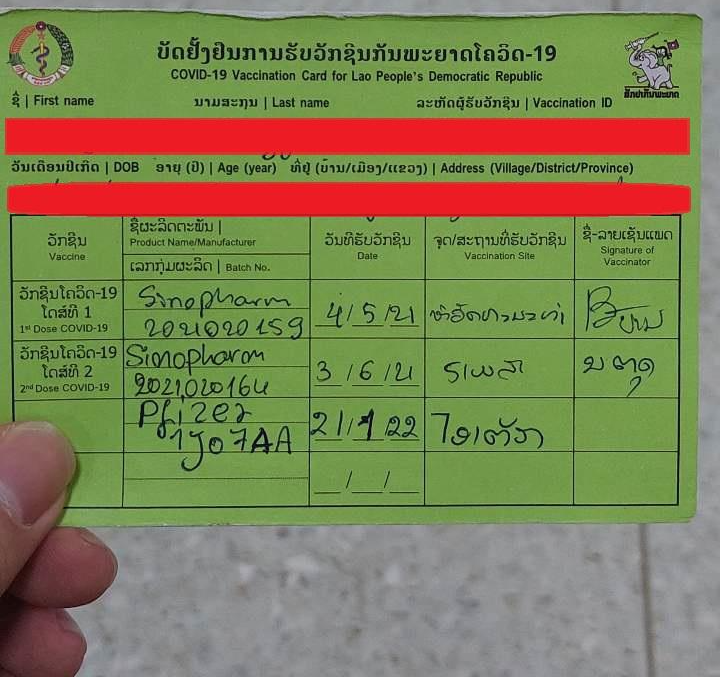 ບັດຢັ້ງຢືນການຮັບວັກຊິນກັນພະຍາດໂຄວິດ-19
COVID-19 Vaccination Card for Lao People's Democratic Republic
ຊື່ | First name ນາມສະກຸນ | Last name ລະຫັດຜູ້ຮັບວັກຊິນ | Vaccination ID
ວັນເດືອນປີເກີດ | DOB ອາຍຸ (ປີ) | Age (year) ທີ່ຢູ່ (ບ້ານ/ເມືອງ/ແຂວງ) | Address (Village/District/Province)
ວັກຊິນ
Vaccine
ຊື່ຜະລິດຕະພັນ |
Product Name/Manufacturer
ເລກກຸ່ມຜະລິດ | Batch No.
ວັນທີຮັບວັກຊິນ
Date
ຈຸດ/ສະຖານທີ່ຮັບວັກຊິນ
Vaccination Site
ຊື່-ລາຍເຊັນແພດ
Signature of
Vaccinator
ວັກຊິນໂຄວິດ-19
ໂດສ໌ທີ 1
1st Dose COVID-19
Sinopharm
2021020159
4/5/21
ວັກຊິນໂຄວິດ-19
ໂດສ໌ທີ 2
2nd Dose COVID-19
Sinopharm
2021020164
3/6/21
Pfizer
1J07AA
21/1/22